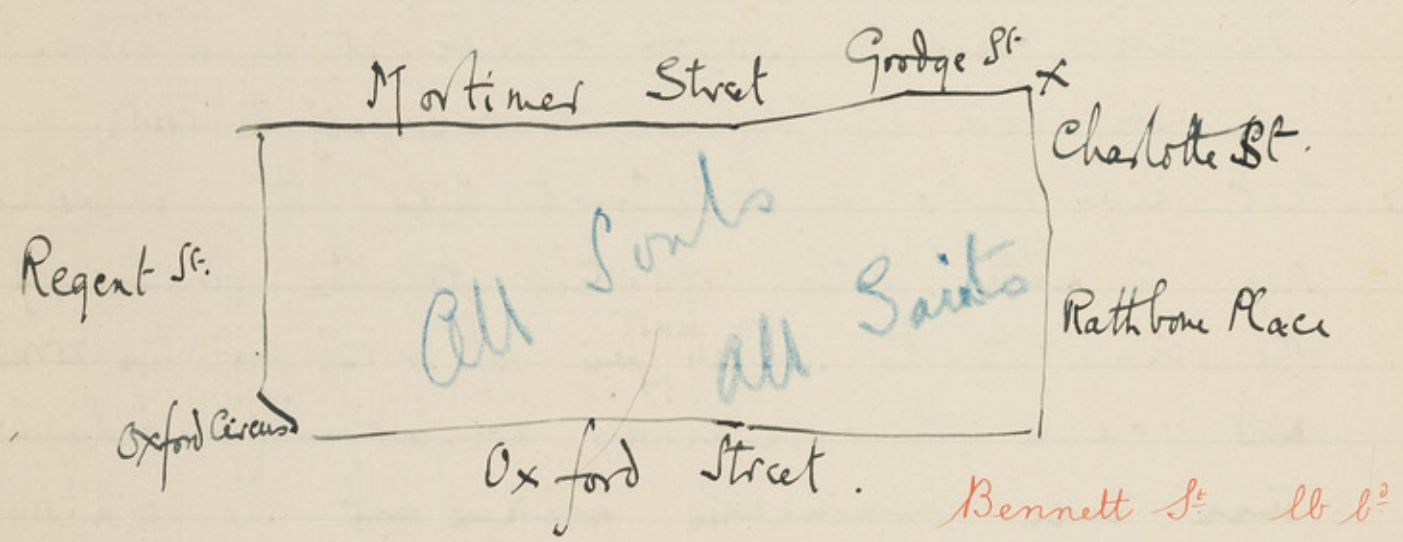 Mortimer Street Goodge St x
Charlotte St.
Regent St.
All Souls
All Saints
Rathbone Place
Oxford Circus
Oxford Street.
Bennett St lb bd